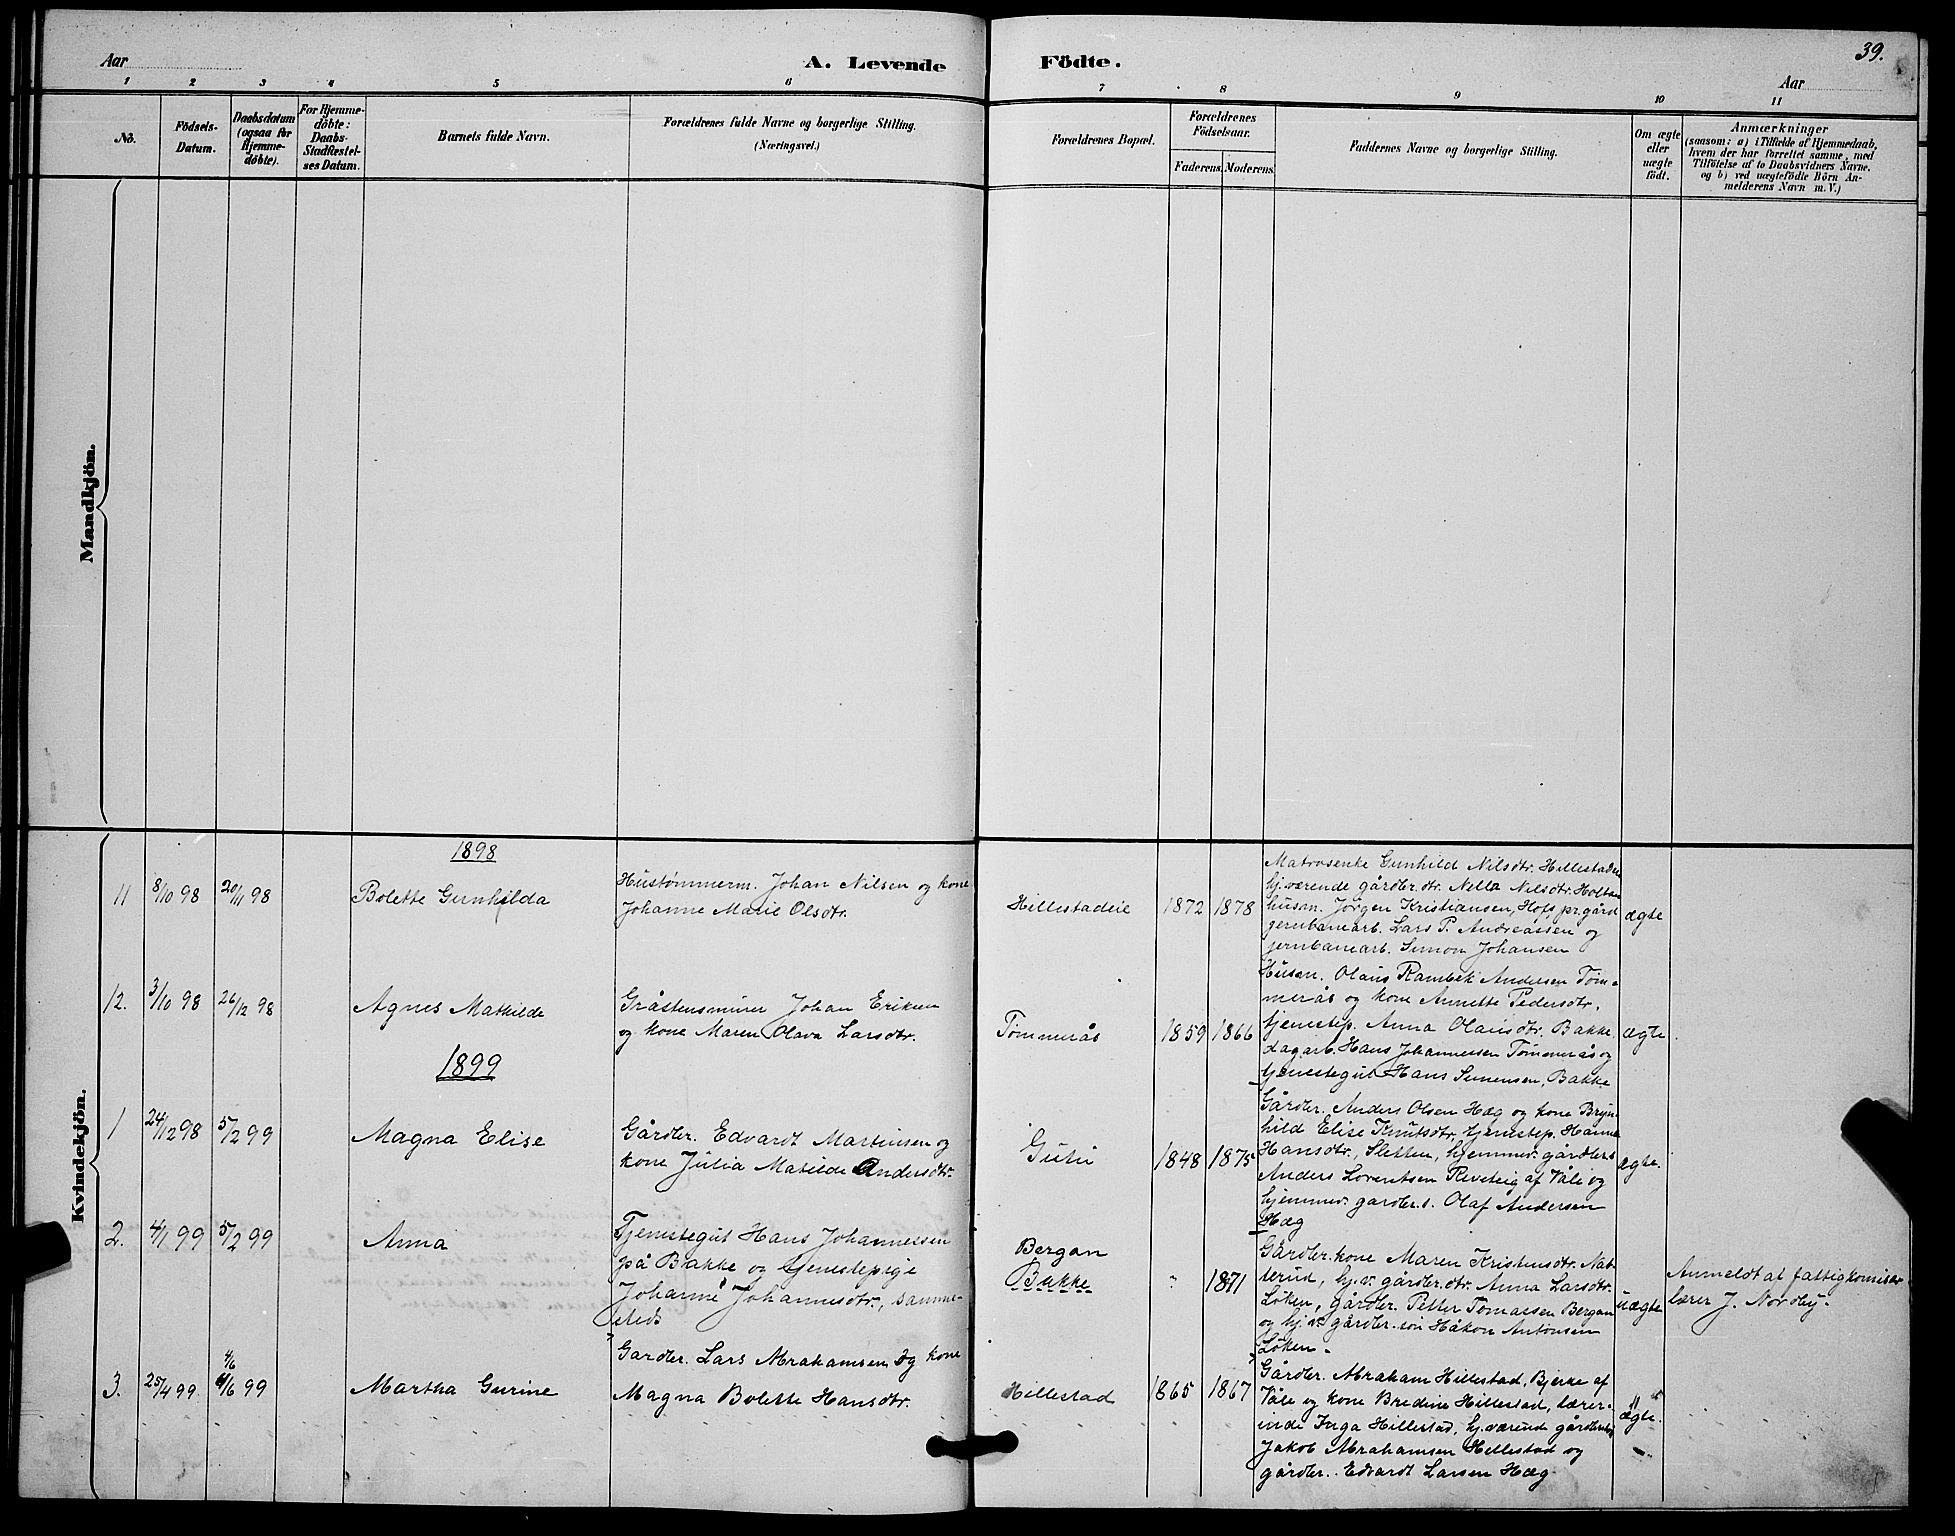 39.
Aar
A. Levende Födte.
Aar
1 2 3 4 5 6 7 8 9 10 11
No.
Födsels-
Datum.
Daabsdatum
(ogsaa for
Hjemme-
döbte).
For Hjemme-
döbte:
Daabs-
Stadfæstel-
ses Datum.
Barnets fulde Navn.
Forældrenes fulde Navne og borgerlige Stilling.
(Næringsvei.)
Forældrenes Bopæl.
Forældrenes
Födselsaar.
Faderens. Moderens.
Faddernes Navne og borgerlige Stilling.
Om ægte
eller
uægte
födt.
Anmærkninger
(saasom: a) i Tilfælde af Hjemmedaab,
hvem der har forrettet samme, med
Tilföielse af to Daabsvidners Navne.
og b) ved uægtefödte Börn An-
melderens Navn m. V.)
Mandkjön.
Kvindekjön.
1898
11 8/10 98 20/11 98
Bolette Gunhilda
Hustømmerm. Johan Nilsen og kone
Johanne Marie Olsdtr.
Hillestadeie
1872 1878
Matrosenke Gunhild Nilsdtr. Hillestadeie
hj.værende gårdbr. dtr. Nella Nilsdtr. Holtan
husm. Jörgen Kristiansen, Hofs pr.gård
jernbanearb. Lars P. Andreassen og
jernbanearb. Simon Johansen
ægte
12. 3/10 98 26/12 98
Agnes Mathilde
Gråstensmurer Johan Eriksen
og kone Maren Olava Larsdtr.
Tømmerås
1859 1866
Husm. Olaus Rambek Andersen Tøm-
merås og kone Annette Pedersdtr.
tjenestep. Anna Olausdtr. Bakke,
dagarb. Hans Johannessen Tømmerås og
tjenestegut Hans Simensen, Bakke
ægte
1899
1 24/12 98 5/2 99
Magna Elise
Gårdbr. Edvardt Martinsen og
kone Julia Matilde Andersdtr.
Gutu
1848 1875
Gårdbr. Anders Olsen Hæg og kone Bryn-
hild Elise Knutsdtr, tjenestep. Hanna
Hansdtr., Sletten, hjemmev. gårdbr.s
Anders Lorentsen Reveteig af Våle og
hjemmev. gårdbr.s. Olaf Andersen
Hæg
ægte.
2. 4/1 99 5/2 99
Anna
Tjenestegut Hans Johannessen
på Bakke og tjenestepige
Johanne Johannesdtr., samme-
steds
Bergan
Bakke
" 1871
Gårdbr.kone Maren Kristensdtr. Nat-
terud, hj.v. gårdbr.dtr. Anna Larsdtr.
Løken, gårdbr. Petter Tomassen Bergan
og hj.v. gårdbr.søn Håkon Antonsen
Løken.
uægte
Anmeldt af fattigkomisær
lærer J. Nordby.
3. 25/4 99. 4/6 4/6 99
Martha Gurine
Gardbr. Lars Abrahamsen og kone
Magna Bolette Hansdtr.
Hillestad
1865 1867
Gårdbr. Abraham Hillestad, Bjerke af
Våle og kone Bredine Hillestad, lærer-
inde Inga Hillestad, hj.værende gårdbr.
Jakob Abrahamsen Hillestad og
gårdbr. Edvardt Larsen Hæg
ægte.